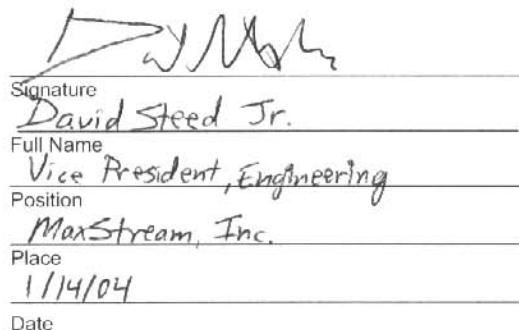 Signature
David Steed Jr.
Full Name
Vice President, Engineering
Position
MaxStream, Inc.
Place
1/14/04
Date